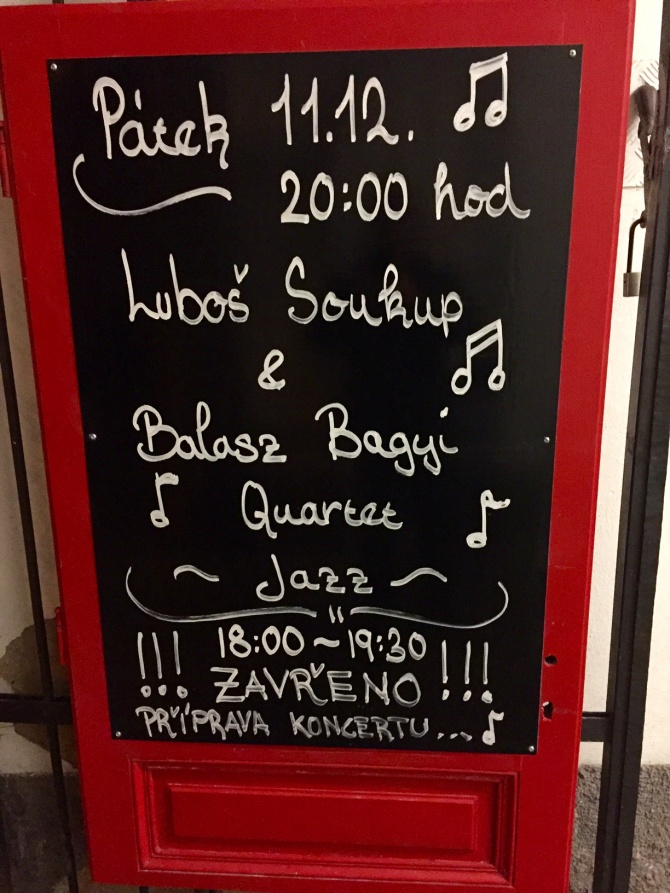 Pátek 11.12.
20:00 hod
Luboš Soukup
&
Balasz Bagyi
Quartet
~ Jazz ~
!!! 18:00~19:30 !!!
ZAVŘENO
PŘÍPRAVA KONCERTU...